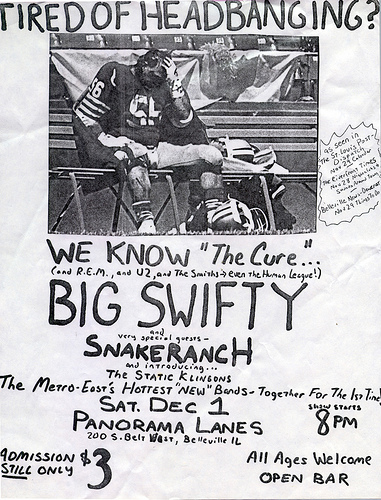 TIRED OF HEADBANGING?
66
as seen in
The St. Louis Post-
Dispatch
Nov 25 Calendar
The Riverfront Times
Nov 28
Belleville News-Democrat
Nov 29
WE KNOW "The Cure"...
(and R.E.M., and U2, and The Smiths → even the Human League!)
BIG SWIFTY
and
very special guests -
SNAKERANCH
and introducing...
The Static Klingons
The Metro-East's Hottest "New" Bands - Together For The 1st Time!
SAT. DEC 1
SHOW STARTS
8PM
PANORAMA LANES
200 S. Belt West, Belleville IL
ADMISSION
STILL ONLY $3
All Ages Welcome
OPEN BAR